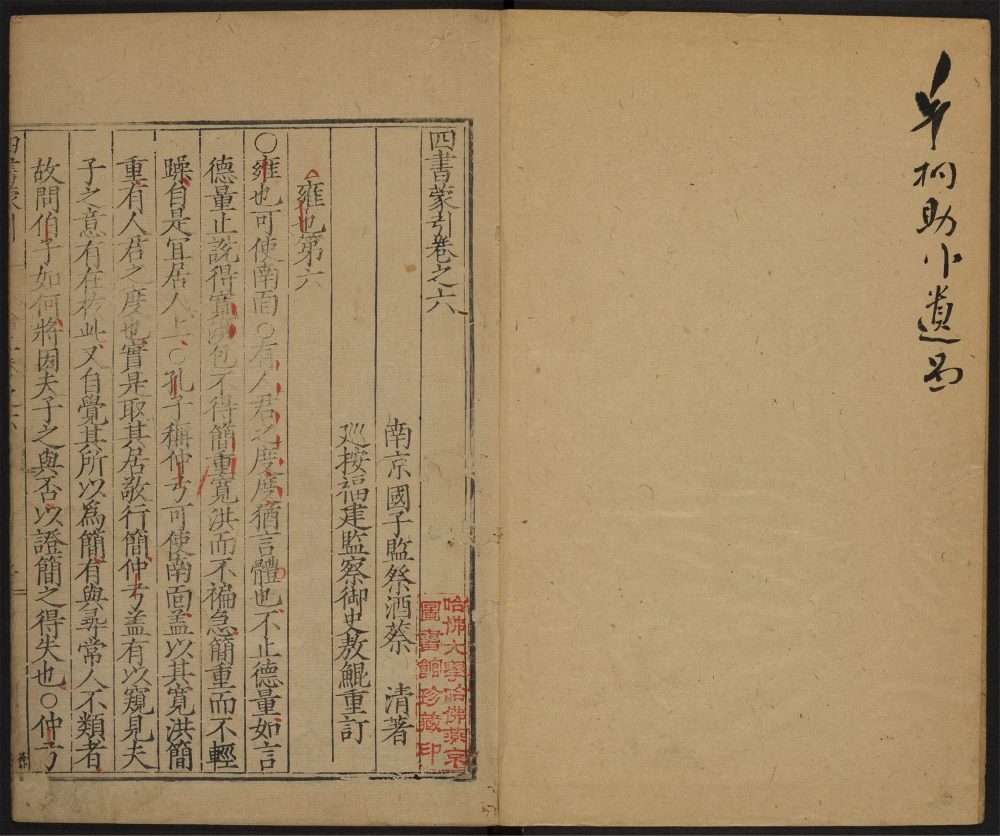 四書蒙引卷之六
南京國子監祭酒蔡 清著
巡按福建監察御史敖鯤重訂
雍也第六
○雍也可使南面○有人君之度度猶言體也不止德量如言
德量止說得寬洪包不得簡重寬洪而不褊急簡重而不輕
躁自是宜居人上○孔子稱仲弓可使南面蓋以其寬洪簡
重有人君之度也實是取其居敬行簡仲弓蓋有以窺見夫
子之意有在於此又自覺其所以爲簡有與尋常人不類者
故問伯子如何將因夫子之與否以證簡之得失也○仲弓
哈佛大學哈佛燕京
圖書館珍藏印